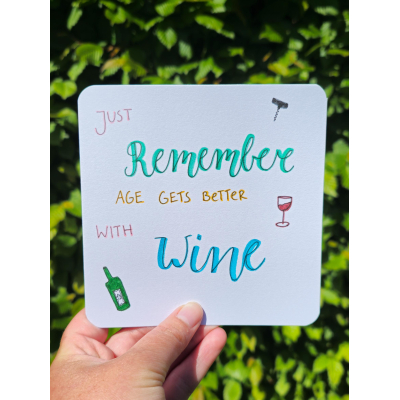 JUST
Remember
AGE GETS BETTER
WITH
Wine